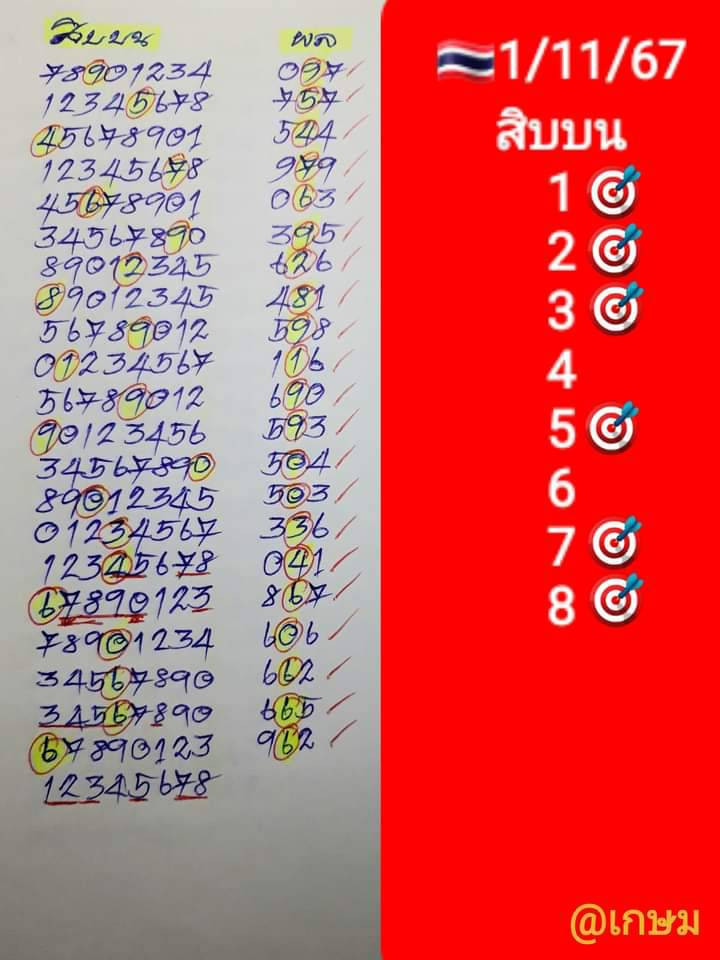 สิบบน ผล
78901234 097
12345678 757
45678901 544
12345678 979
45678901 063
34567890 395
89012345 626
89012345 481
56789012 598
01234567 116
56789012 690
90123456 593
34567890 504
89012345 503
01234567 336
12345678 041
67890123 867
78901234 606
34567890 662
34567890 665
67890123 962
12345678
1/11/67
สิบบน
1
2
3
4
5
6
7
8
@เกษม